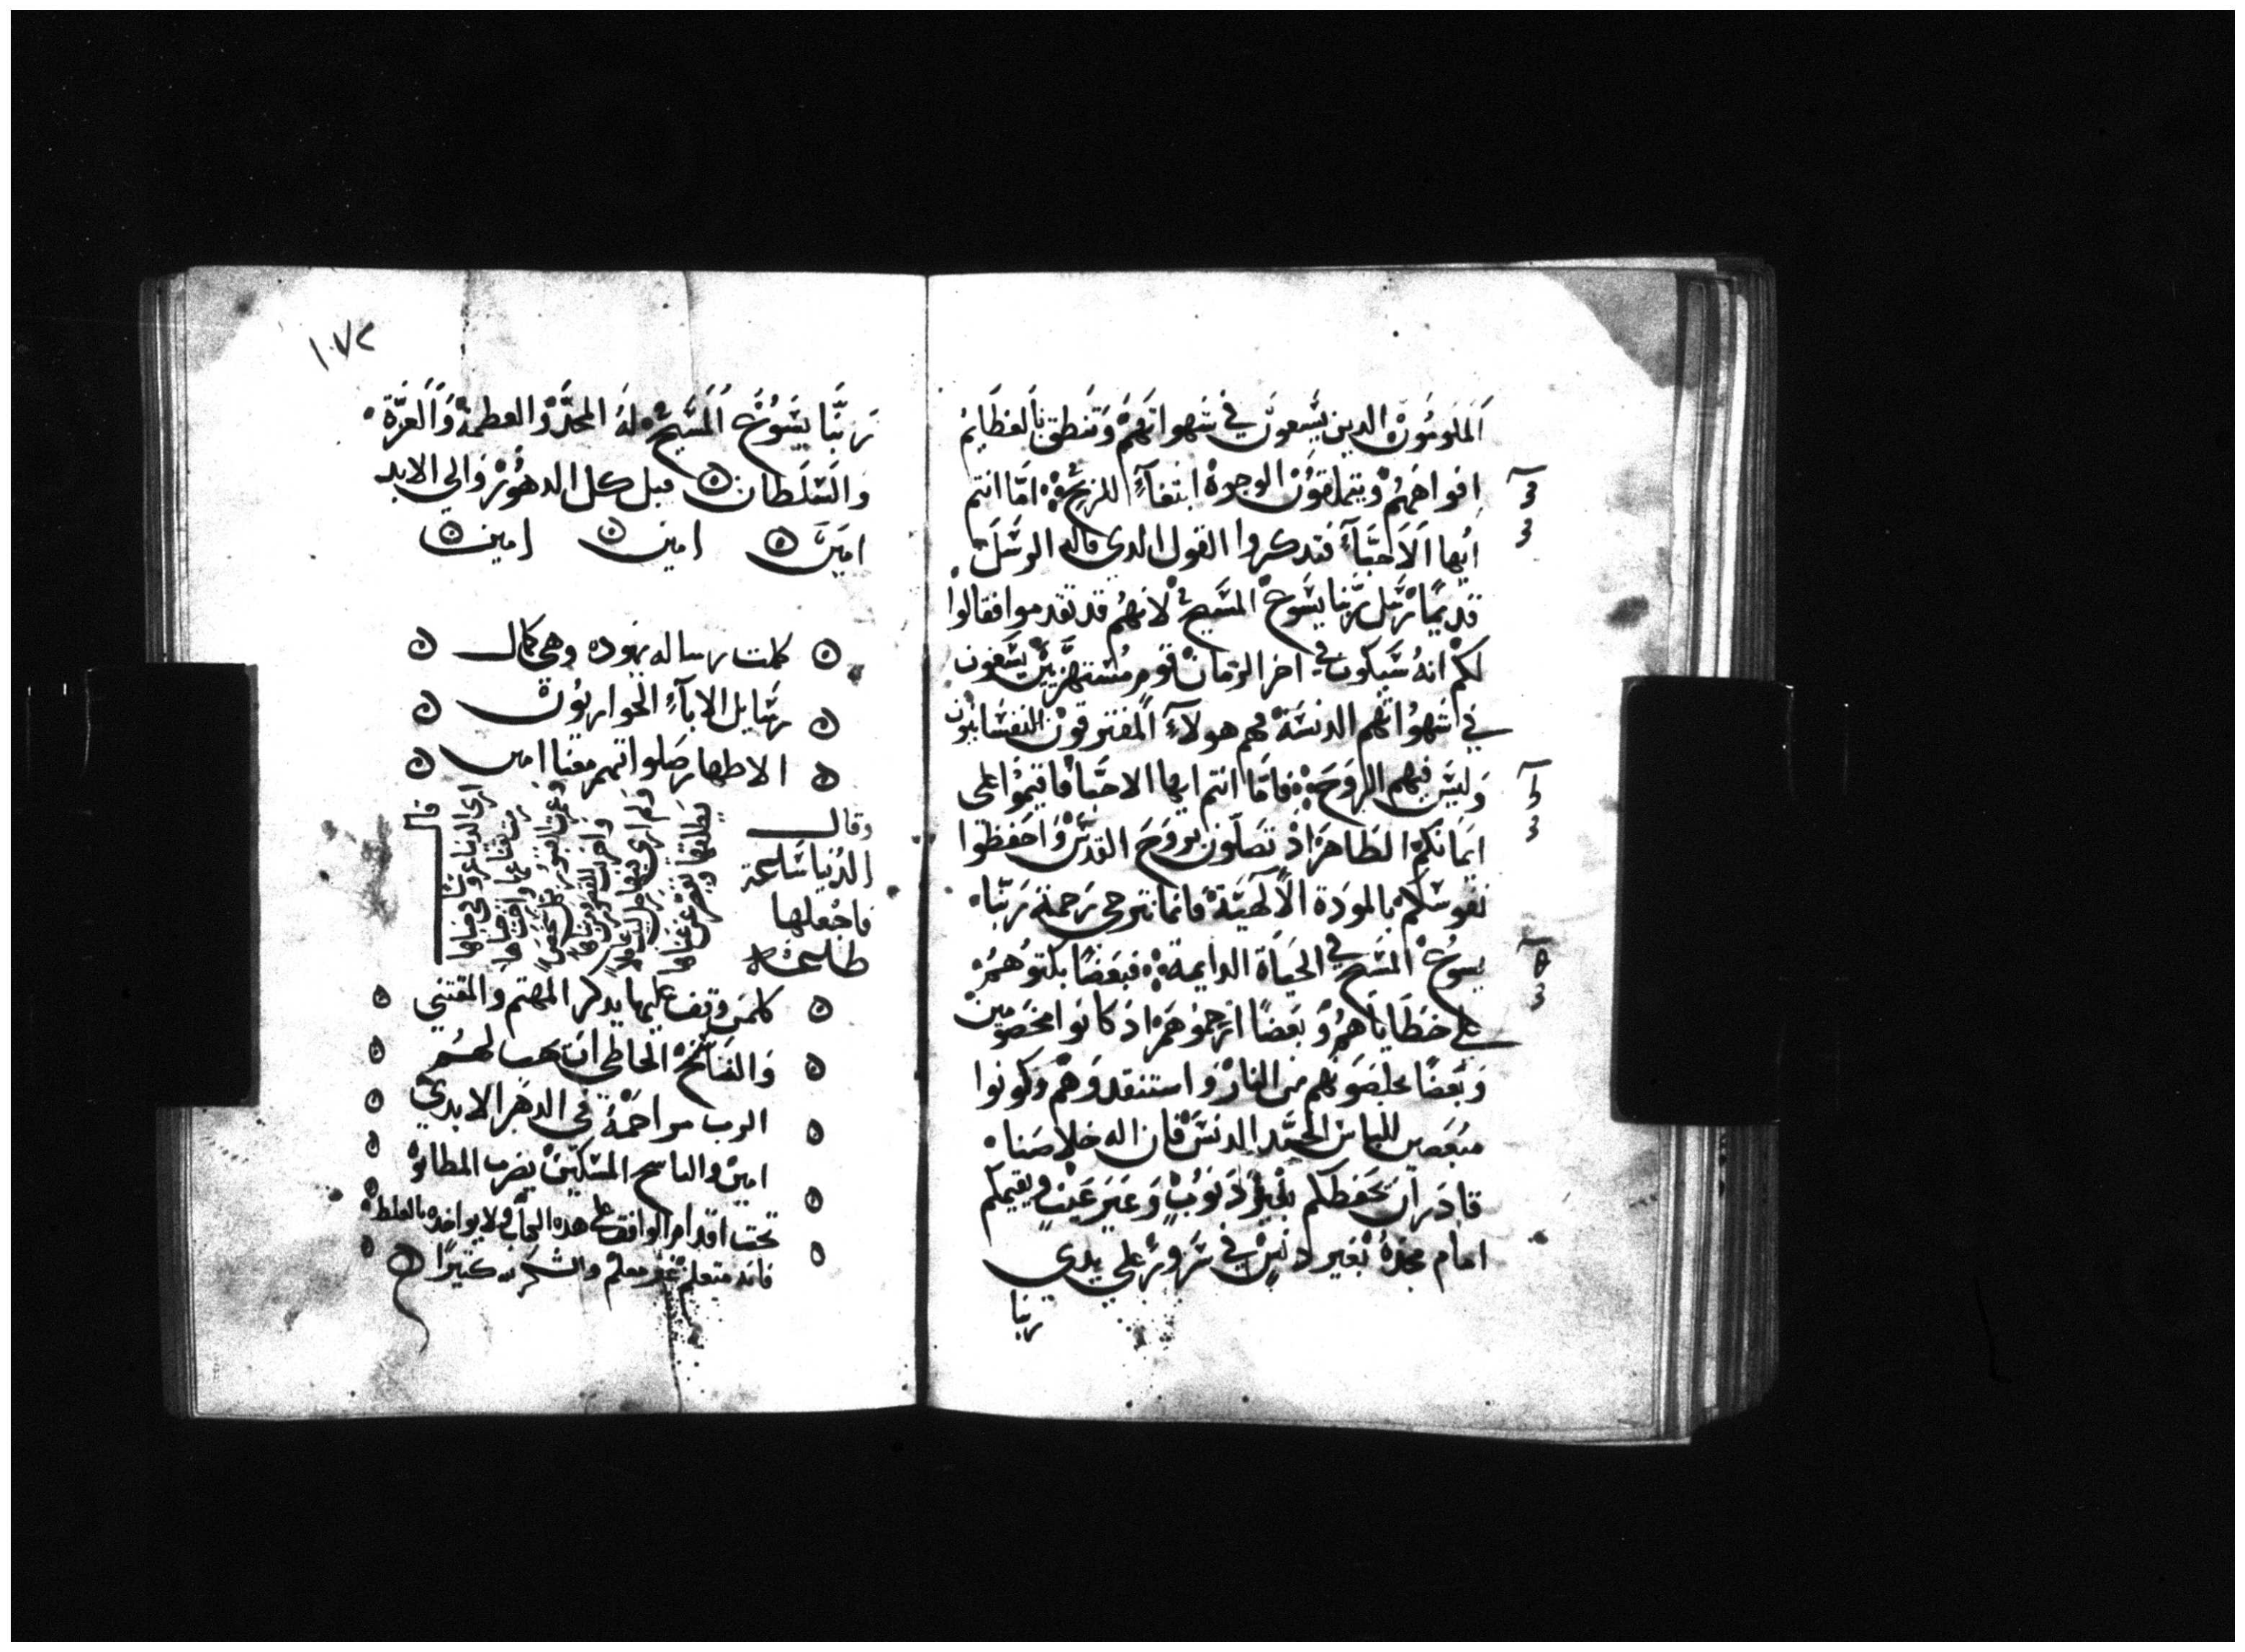 المَلومُون الدين يَسَعون في شهواتهم وَتنطق بالعظَايم
افواههُم ويتملقوُن الوجوه ابتغآءً للربح ۞ امّا انتم
ايها الاَحبّآءَ فتدكروا القول الدى قاله الرسَل
قديمًا رسَل ربّنا يسَوع المسَيح لانهُم قد تقدموا فقالوا
لكم انهُ سَيكون في اخر الزمان قوم مُستهزيين يسَعون
في شهوُاتهم الدنسَة هم هولآءَ المفترقون النفسَانيون
وَليسَ فيهم الروَح ۞ فامّا انتم ايها الاحبّا فاقيموُا على
ايمَانكم الطَاهرَ اذ تصَلون بروَح القدسَ وَاحفظوا
نفوسَكم بالموَدة الالهَيَة فانما نترجي رَحمة رَبّنا
يسوُع المسَيح في الحيَاة الدايمة ۞ فبعَضًا بكتوُهمُ
على خطَايَاهُم وَبَعَضًا ارَحموُهم اذ كانوا مخصَومين
وَبَعَضًا خلصَوُهم من النار وَاستنقدوَهم وَكونوا
مبغصين للباس الجسَد الدنسَ فان اله خلاصَنا
قادَر ان يحَفظكم بغيرَ ذنوُب وَغيَر عَيب ويقيمكم
امام مجدهُ بغير دنسٍ في سَروُر على يدي
ربنا
١٠٧٢
رَبّنا يسَوُع المسَيح لهُ المجدَ وَالعظمة وَالعزّة
وَالسَلطان قبل كل الدهوُر وَالي الابد
امَين امين امين
كملت رساله يهوده وهي كمال
رسَايل الابآءَ الحواريوُن
الاطهار صَلواتهم معنا امين
وقال
الدُنيا سَاعة
فاجْعلها
طاعة
قال
كلمَن وقف عليها يدكر المهتم والمقتني
وَالناسَخ الخاطي ان يهب لهم
الرب مراحمهُ في الدهَر الابدي
امين والناسخ المسَكين يضرب المطانوَه
تحت اقدام الواقف على هده الحروف لايواخده بالغلط
فانه متعلم غير معلم والشكر لله كثيرًا